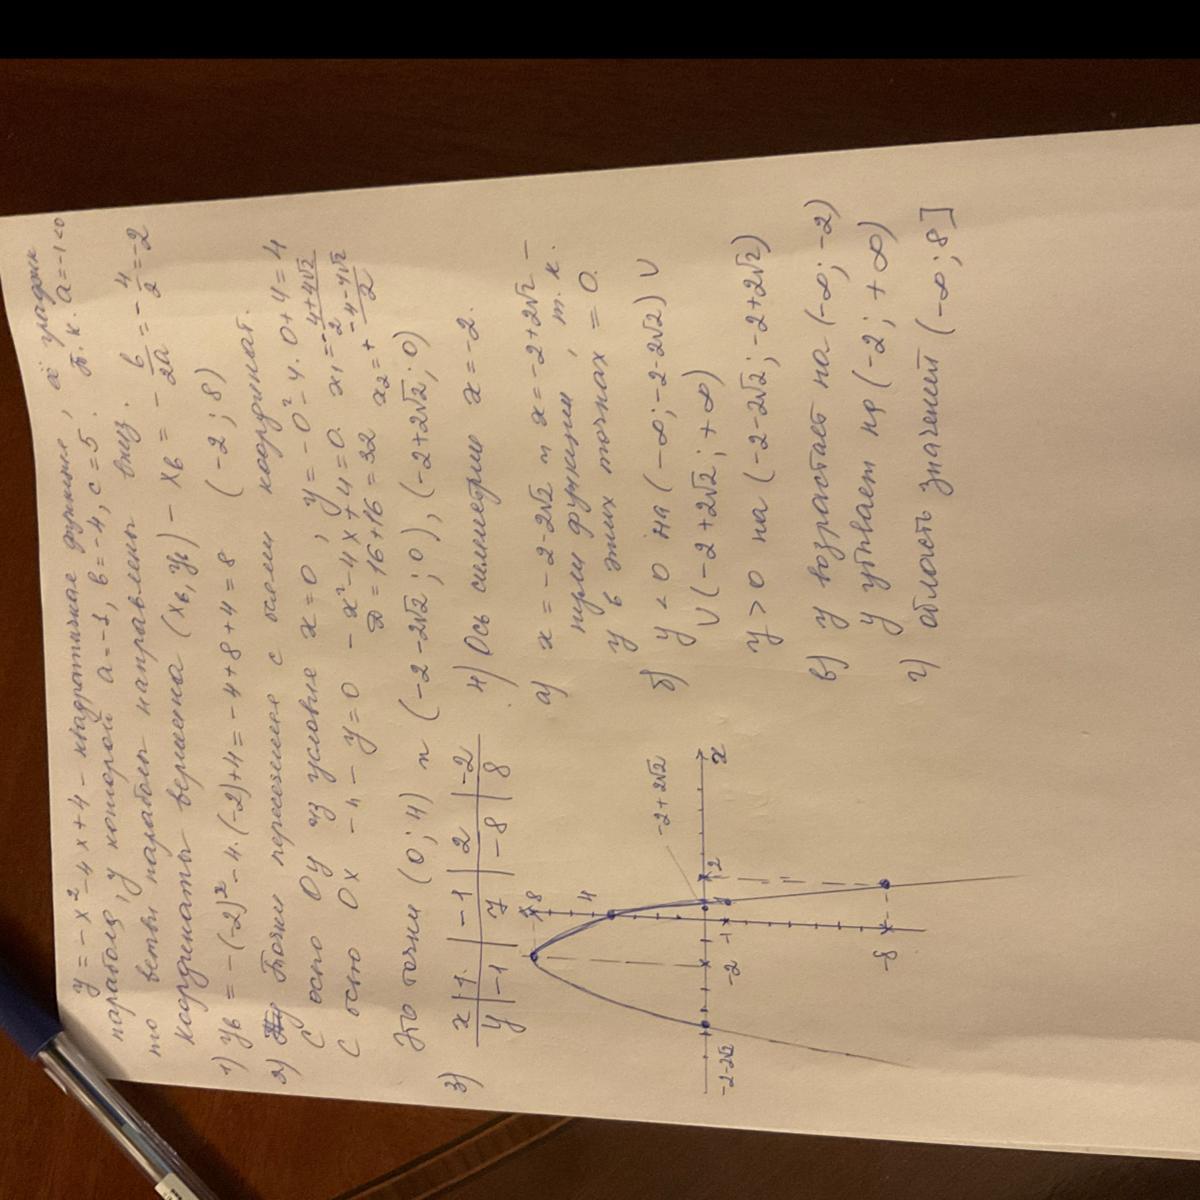 y = - x² - 4x + 4 - квадратичная функция, её график
парабола, у которой a = -1, b = -4, c = 5. Т.к. a = -1 < 0
то ветви параболы направлены вниз.
координаты вершины (xв, yв) - xв = - b/2a = - 4/2 = -2
1) yв = - (-2)² - 4·(-2) + 4 = - 4 + 8 + 4 = 8 (-2; 8)
2) Точки пересечения с осями координат.
С осью Oy из условие x = 0, y = - 0² - 4·0 + 4 = 4
С осью Ox - y = 0 - x² - 4x + 4 = 0. x₁ = - 4+4√2/2
D = 16 + 16 = 32 x₂ = + -4-4√2/2
Это точки (0; 4) и (-2-2√2; 0), (-2+2√2; 0)
3)
x | 1 | -1 | 2 | -2
y | -1 | 7 | -8 | 8
8
4
-2+2√2
-2-2√2
-2
-1
2
x
-8
4) Ось симметрии x = -2.
а) x = -2-2√2 и x = -2+2√2 -
нули функции, т.к.
y в этих точках = 0.
б) y < 0 на (-∞; -2-2√2) ∪
∪ (-2+2√2; +∞)
y > 0 на (-2-2√2; -2+2√2)
в) y возрастает на (-∞; -2)
y убывает на (-2; +∞)
г) область значений (-∞; 8]